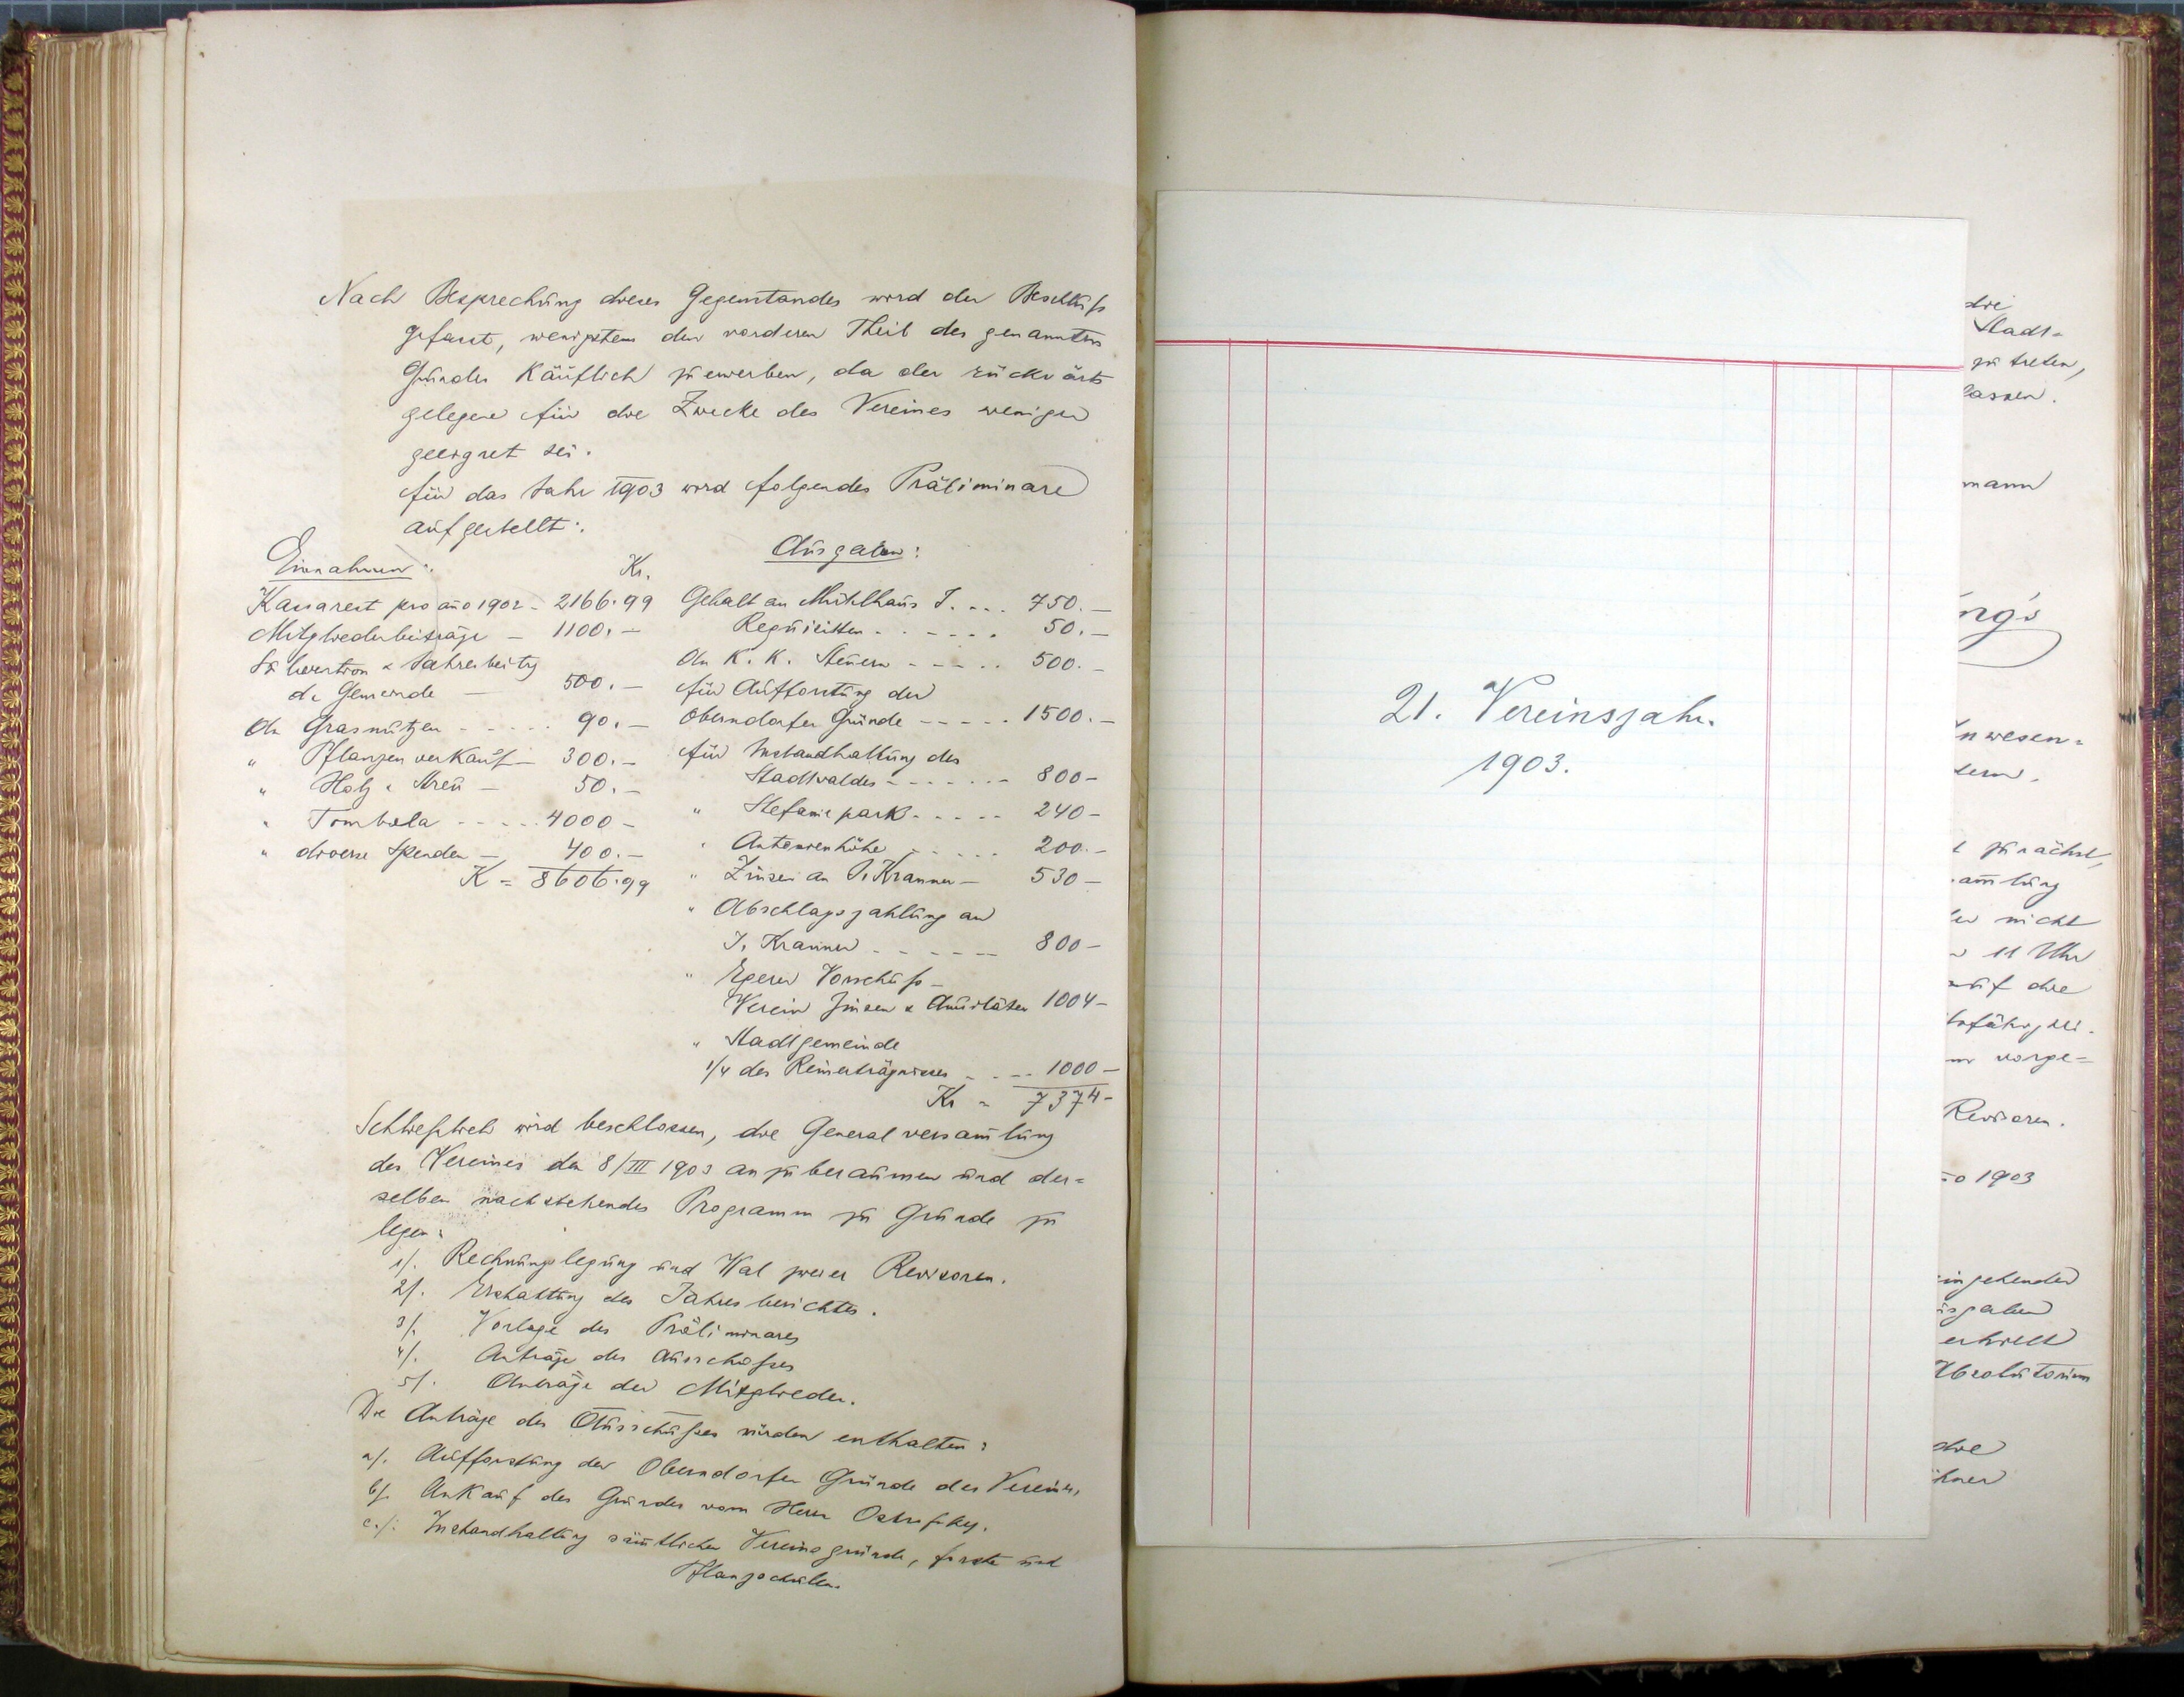 Nach Besprechung dieses Gegenstandes wird der Beschluß
gefasst, wenigstens den vorderen Theil des genannten
Grundes Käuflich zu erwerben, da der rückwärts
gelegene für die Zwecke des Vereines weniger
geeignet sei.
für das Jahr 1903 wird folgendes Präliminare
aufgestellt:
Einnahmen: Kr.
Kassarest pro anno 1902 - 2166.99
Mitgliederbeiträge - 1100.-
Subvention & Jahresbeitrg
d. Gemeinde - 500.-
An Grasnutzen - - - - 90.-
" Pflanzenverkauf - 300.-
" Holz & Streu - 50.-
" Tombola - - - - 4000 -
" diverse Spenden - 400.-
K = 8606.99
Ausgaben:
Gehalt an Mühlhaus J. . . . 750.-
Requisiten - - - - - 50.-
An K. K. Steuern - - - - - 500.-
für Aufforstung der
Oberndorfer Gründe - - - - - 1500.-
für Instandhaltung des
Stadtwaldes - - - - - - 800 -
" Stefanie park - - - - - 240 -
" Antonienhöhe - - - - - 200.-
" Zinsen an J. Kranner - 530 -
" Abschlagszahlung an
J. Kranner - - - - - - 800 -
" Egerer Vorschuß -
Verein Zinsen & Anuitäten 1004 -
" Stadtgemeinde
1/4 des Reinerträgnisses - - - - 1000 -
Kr = 7374 -
Schließlich wird beschlossen, die Generalversam̄lung
des Vereines den 8/III 1903 anzuberaumen und der=
selben nachstehendes Programm zu Grunde zu
legen:
1/. Rechnungslegung und Wal zweier Revisoren.
2/. Erstattung des Jahresberichtes.
3/. Vorlage des Präliminares
4/. Anträge des Ausschußes
5/. Anträge der Mitglieder.
Die Anträge des Ausschußes würden enthalten:
a/. Aufforstung der Oberndorfer Gründe des Vereines,
b/. Ankauf des Grundes vom Herrn
c./. Instandhaltung sämtlicher Vereinsgründe, forste und
Pflanzschulen.
21. Vereinsjahr.
1903.
die
Stadt=
zu treten,
lassen.
mann
ng's
nwesen=
tern.
t zunächst,
am̄lung
er nicht
11 Uhr
auf die
vorge=
Revisoren.
o 1903
eingehender
usgaben
erhielt
Absolutorium
die